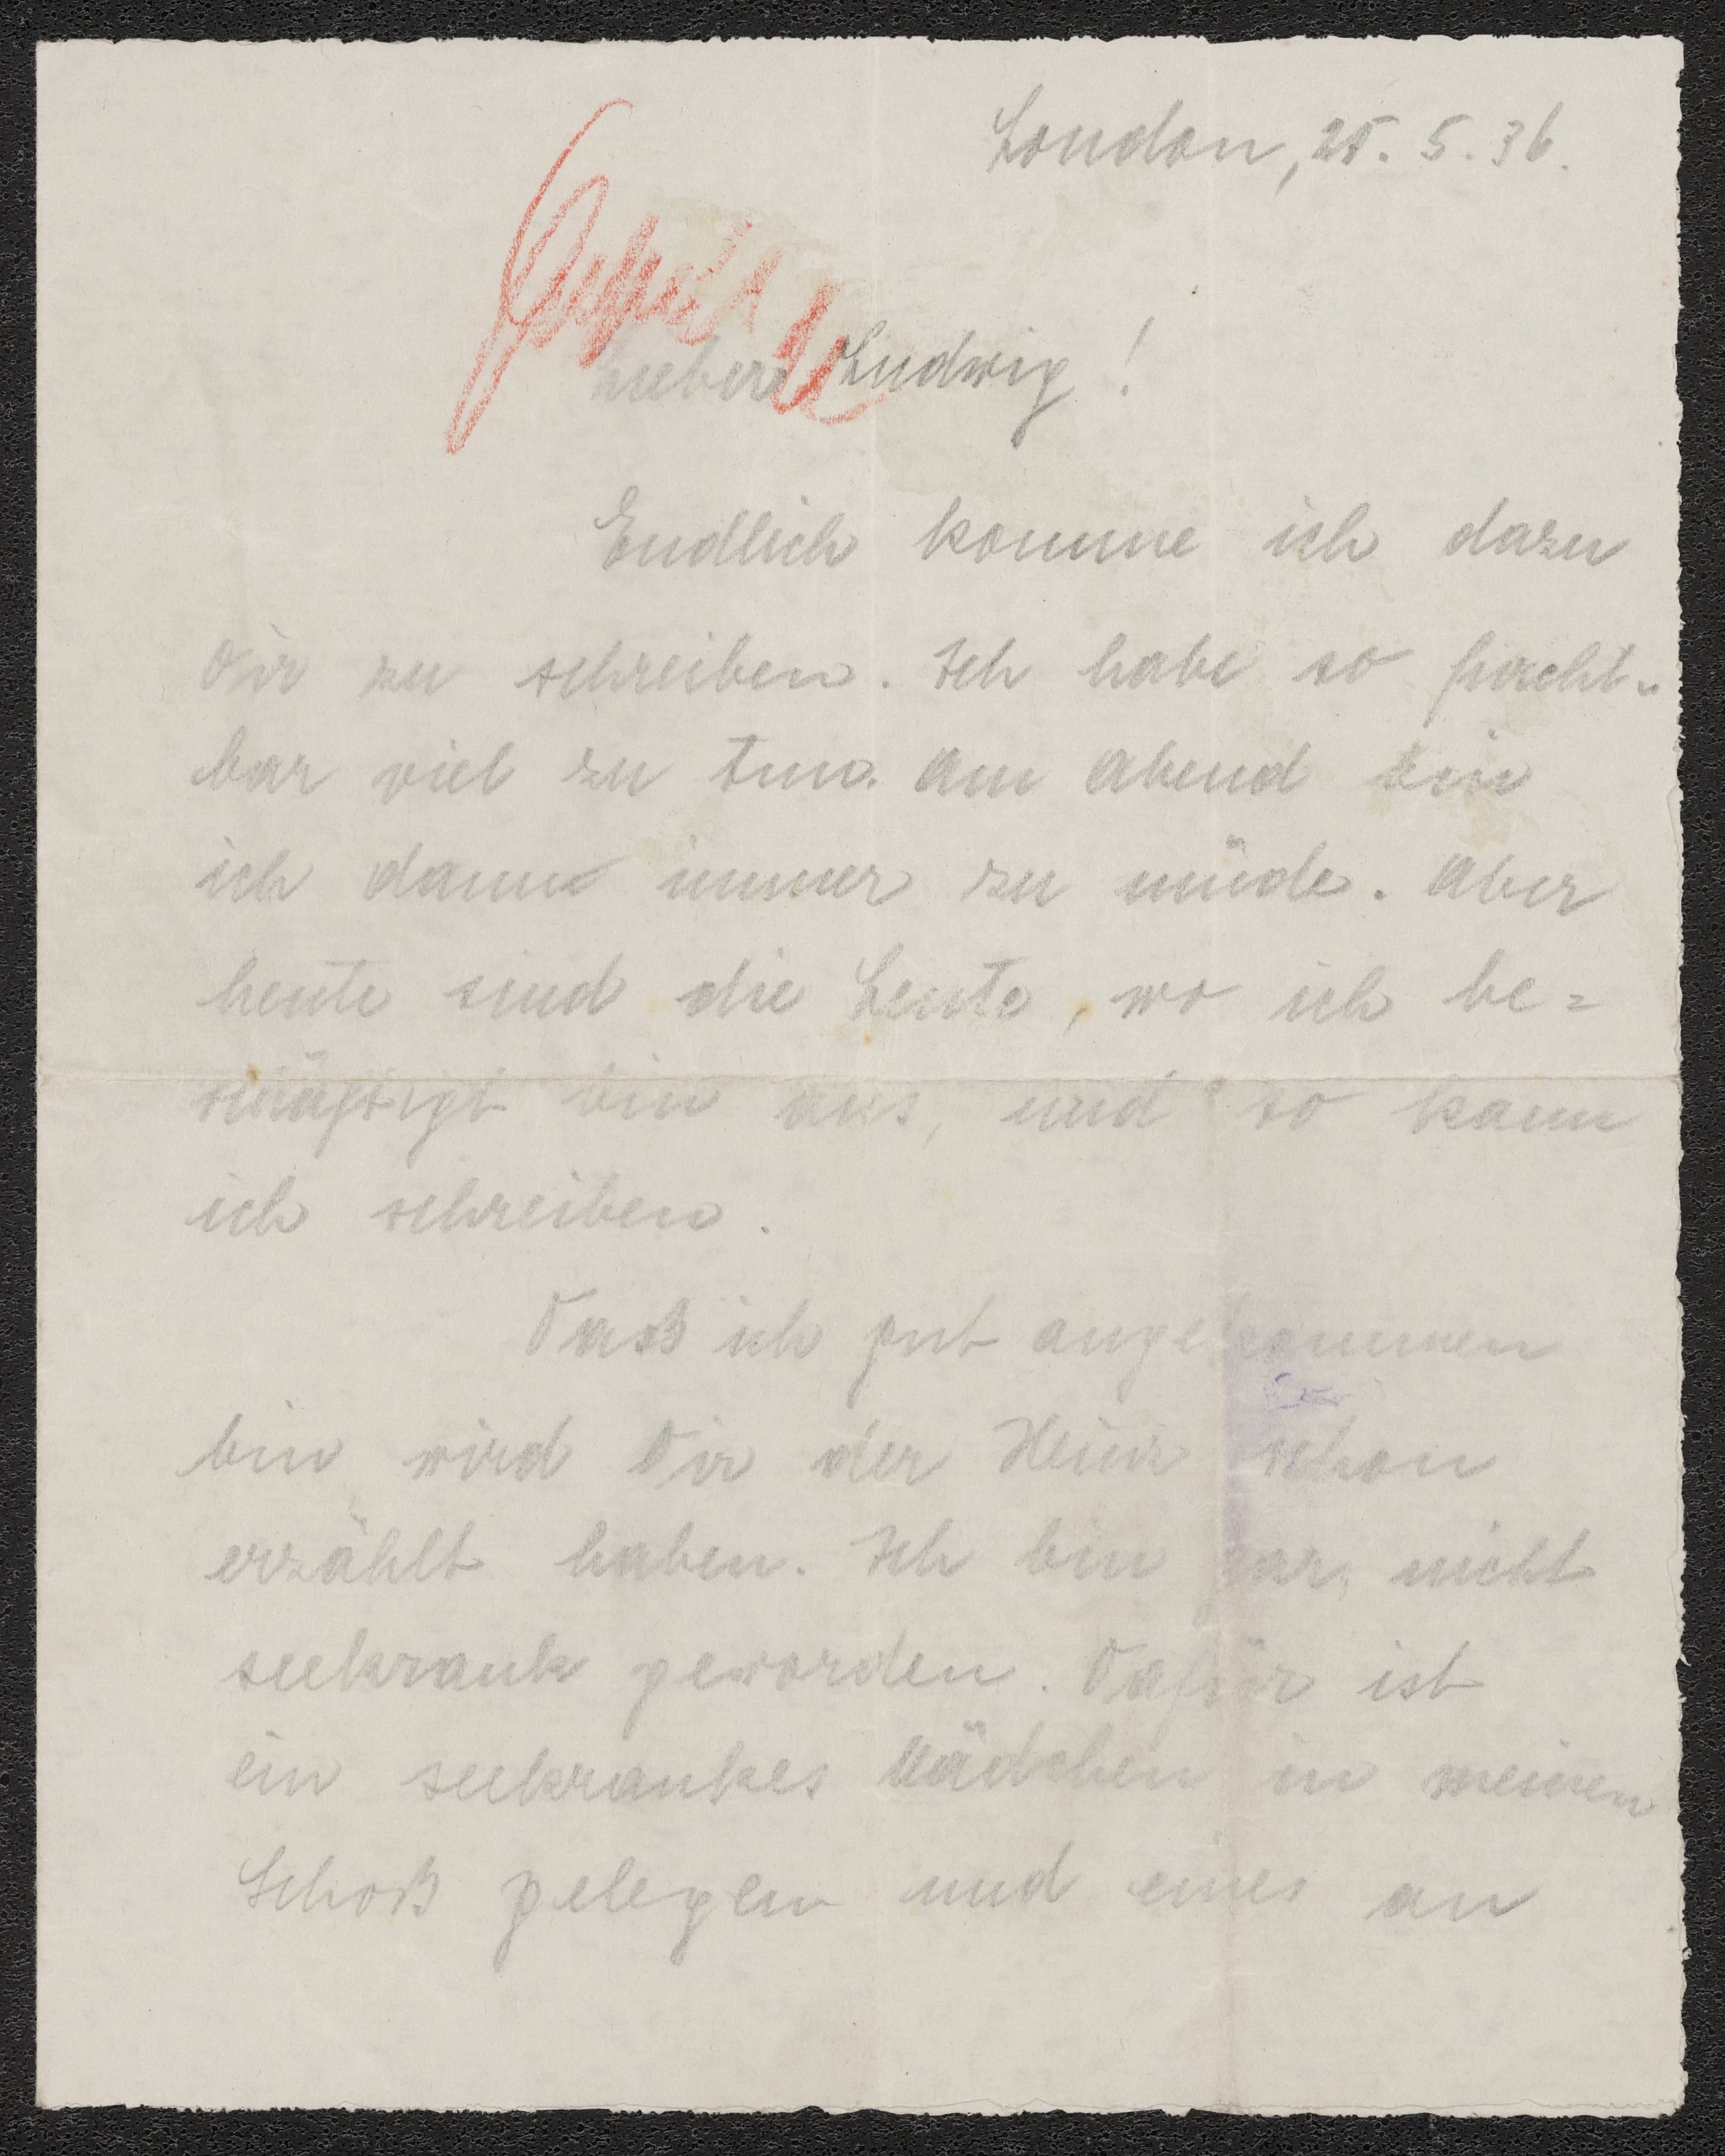 London, 25. 5. 36.
Lieber Ludwig!
Endlich komme ich dazu
Dir zu schreiben. Ich habe so furcht-
bar viel zu tun. Am Abend bin
ich dann immer zu müde. Aber
heute sind die Leute, wo ich be=
schäftigt bin aus, und so kann
ich schreiben.
Daß ich gut angekommen
bin wird Dir der Heinz schon
erzählt haben. Ich bin gar nicht
seekrank geworden. Dafür ist
ein seekrankes Mädchen in meinen
Schoß gelegen und eines an